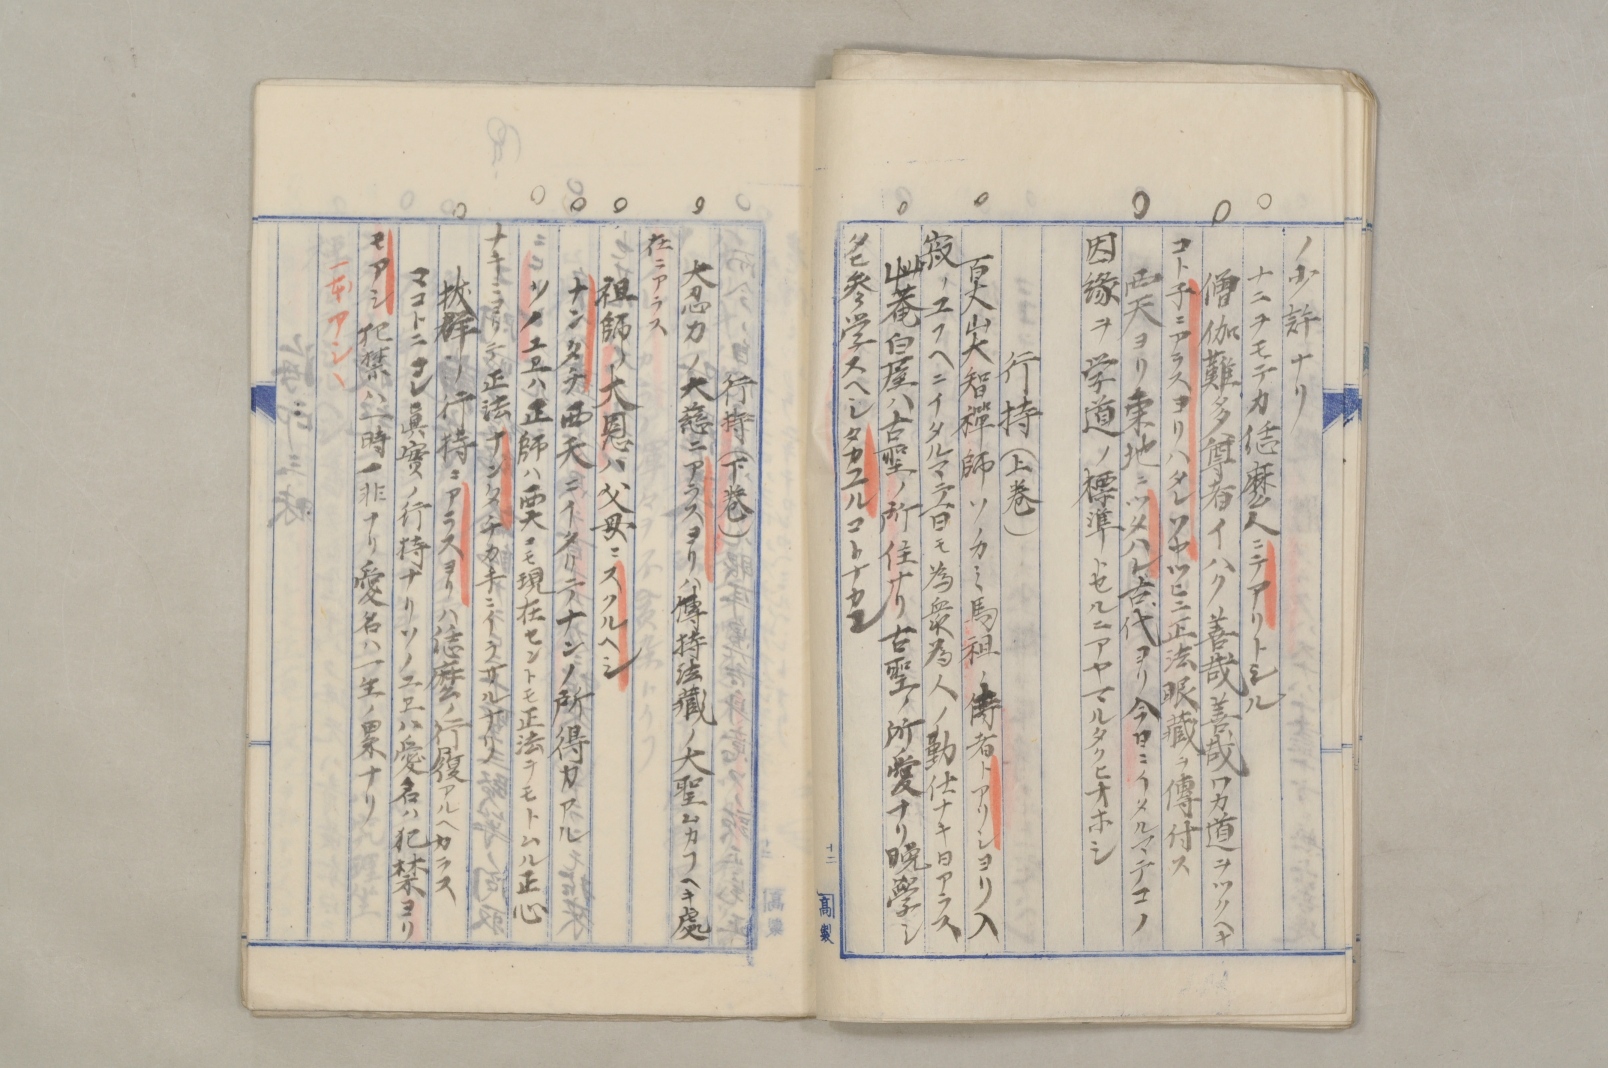 ノ少許ナリ
ナニヲモテカ恁麼人ニテアリトシル
僧伽難多尊者イハク善哉善哉ワカ道ヲツクヘキ
コト子ニアラスヨリハタレソヤツヒニ正法眼蔵ヲ傳付ス
西天ヨリ東地ニツタハレ古代ヨリ今日ニイタルマテコノ
因縁ヲ学道ノ標準トセルニアヤマルタクヒオホシ
行持(上巻)
百丈山大智禪師ソノカミ馬祖ノ侍者トアリシヨリ入
寂ノユフヘニイタルマテ一日モ為衆為人ノ勤仕ナキ日アラス
艸菴白屋ハ古聖ノ所住ナリ古聖ノ所愛ナリ晩學シ
タヒ参学スヘシタカフルコトナカレ
十二
髙製
行持(下巻)
大忍力ノ大慈ニアラスヨリハ傳持法藏ノ大聖ムカフヘキ處
在ニアラス
祖師ノ大恩ハ父母ニスクルヘシ
ナンタチ西天ニイタリテナンノ所得カアル
ヒツノユヱハ正師ハ要コモ現在セントモ正法ヲモトムル正心
ナキニヨリテ正法ナンタチカ手ニイラサルナリ
抜群ノ行持ニアラスヨリハ恁麼ノ行履アルヘカラス
マコトニコレ眞實ノ行持ナリソノユヱハ愛名ハ犯禁ヨリ
モアシ犯禁ハ一時ノ非ナリ愛名ハ一生ノ累ナリ
一本アシヽ